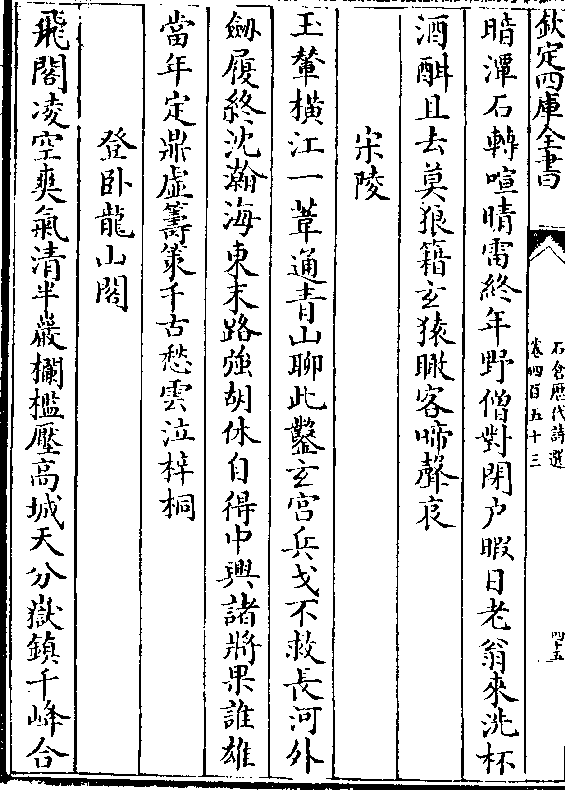 欽定四庫全書
石倉歷代詩選
卷四百五十三
四十五
暗潭石轉喧晴雷終年野僧對閉户暇日老翁來洗杯
酒酣且去莫狼籍玄猿瞰客啼聲哀
宋陵
玉輦橫江一葦通青山聊此鑿玄宫兵戈不救長河外
劔履終沈瀚海東末路強胡休自得中興諸將果誰雄
當年定鼎虛籌策千古愁雲泣梓桐
登卧龍山閣
飛閣凌空爽氣清半巖欄檻壓高城天分嶽鎮千峰合